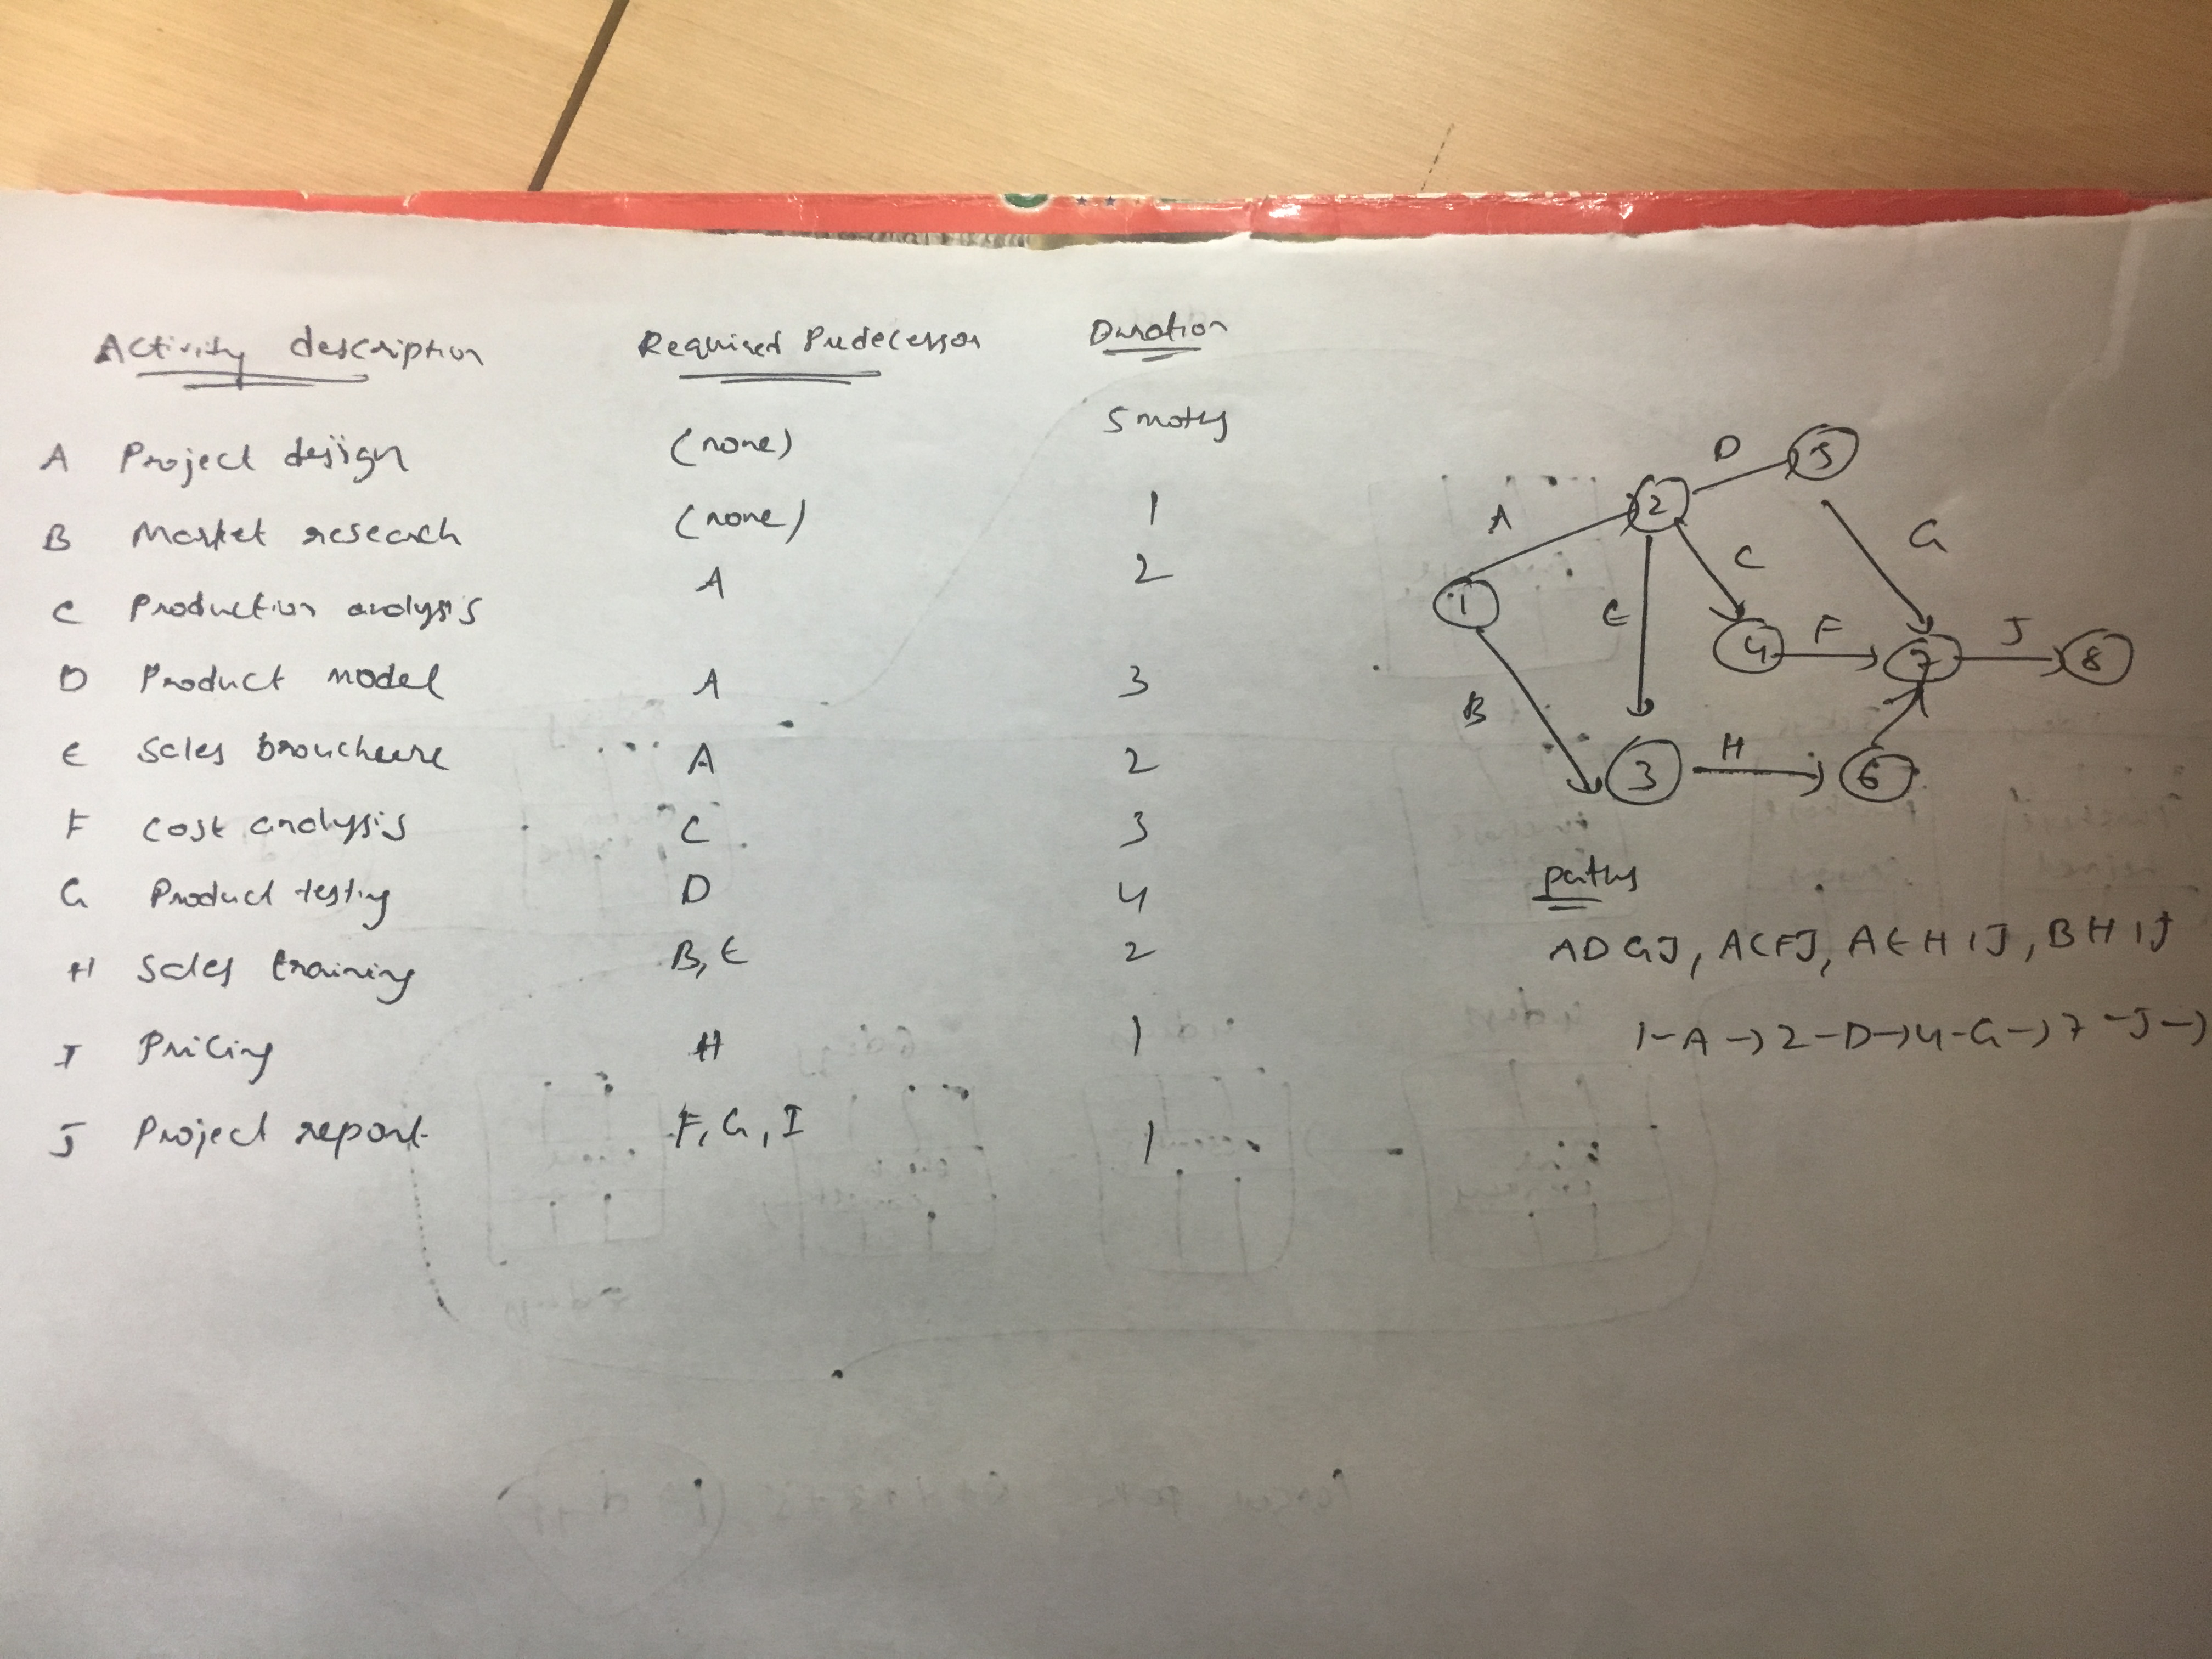 Activity description Required Predecessor Duration
A Project design (none) 5 moths
B Market research (none) 1
C Production analysis A 2
D Product model A 3
E Sales broucheure A 2
F Cost analysis C 3
G Product testing D 4
H Sales training B, E 2
I Pricing H 1
J Project report F, G, I 1
D 5
A 2 G
C
1 E 4 F 7 J 8
B
3 H 6
paths
ADGJ, ACFJ, AEHIJ, BHIJ
1-A→2-D→4-G→7-J→